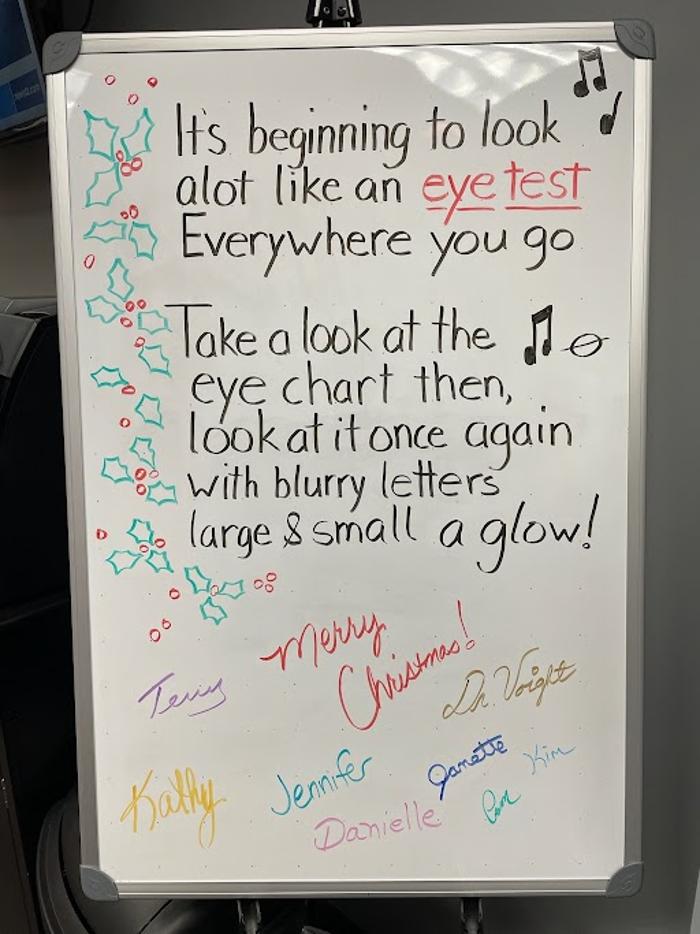 It's beginning to look
alot like an eye test
Everywhere you go
Take a look at the
eye chart then,
look at it once again
with blurry letters
large & small a glow!
Merry
Christmas!
Terry
Dr. Voight
Kathy
Jennifer
Janette
Kim
Danielle